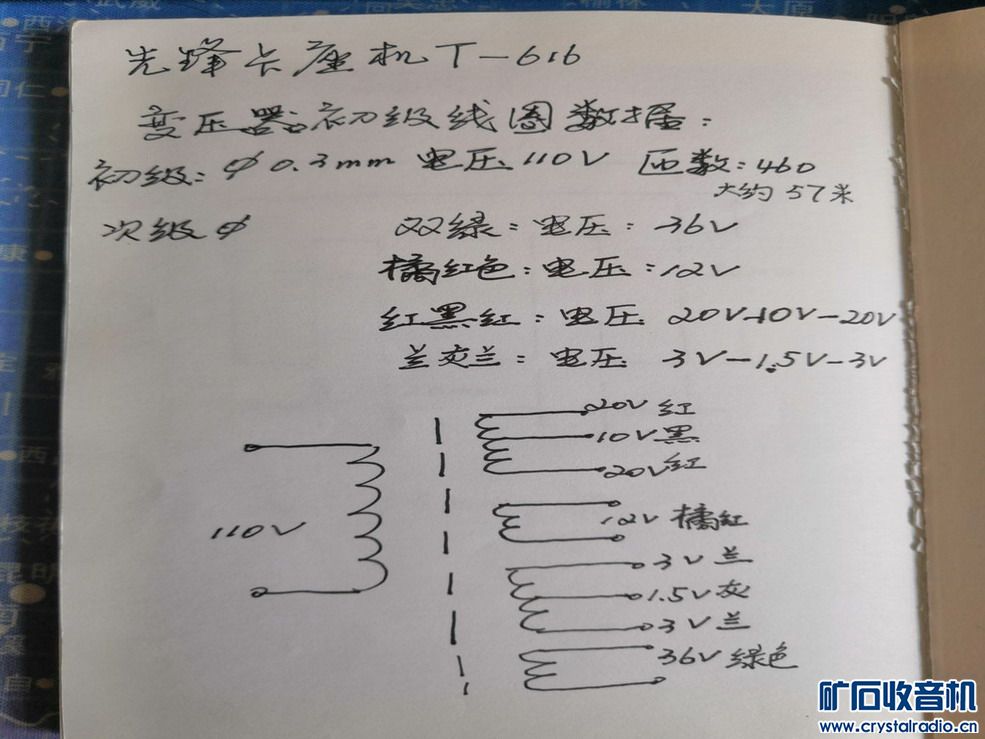 先鋒卡座机T-616
变压器初级线圈数据:
初级:φ0.3mm 电压110V 匝数:460
大约57米
次级φ 双绿:电压:36V
橘红色:电压:12V
红黑红:电压 20V-10V-20V
兰灰兰:电压 3V-1.5V-3V
20V红
10V黑
20V红
110V
12V橘红
3V兰
1.5V灰
3V兰
36V绿色
矿石收音机
www.crystalradio.cn